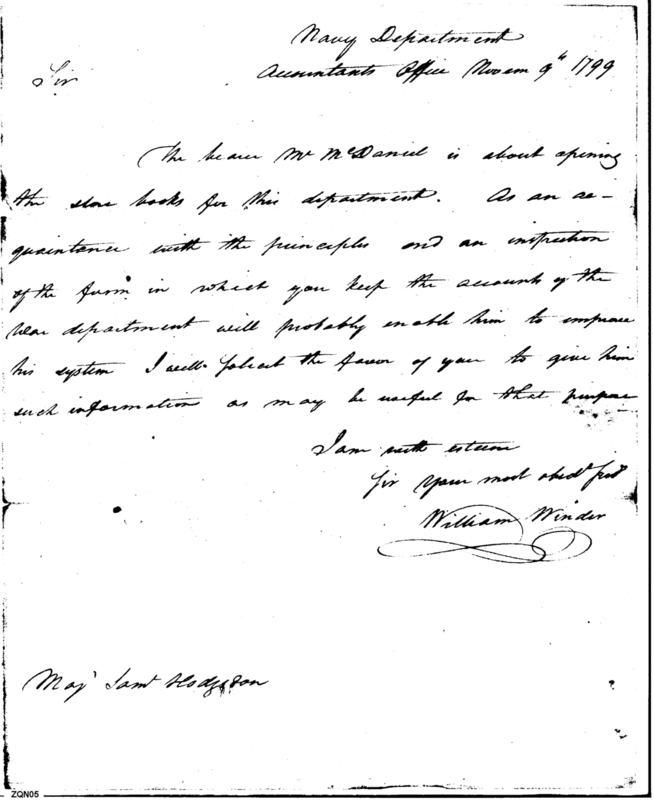 Navy Department
Sir Accountants Office Novem 9th 1799
The bearer Mr McDaniel is about opening
the store books for this department. As an ac-
quaintance with the principles and an instruction
of the form in which you keep the accounts of the
War department will probably enable him to improve
his system I will solicit the favor of you to give him
such information as may be useful for that purpose
I am with esteem
Sir Your most obedt
William Winder
Majr Saml Hodgsdon
ZQN05